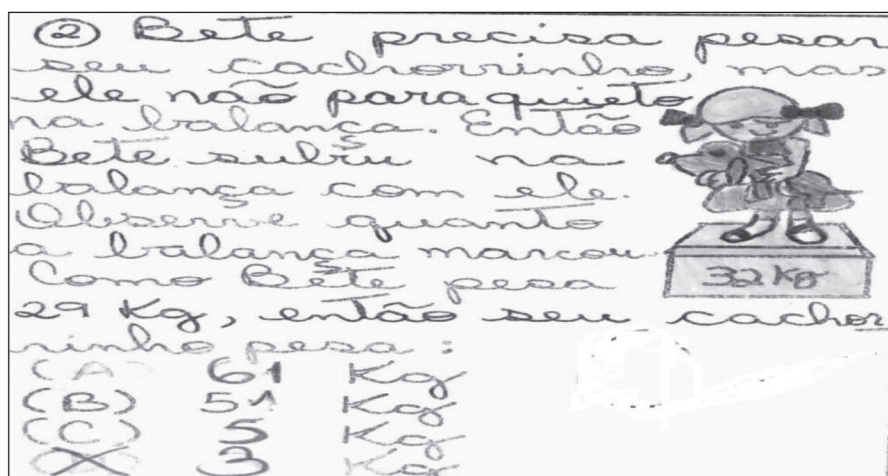 ② Bete precisa pesar
seu cachorrinho, mas
ele não para quieto
na balança. Então
Bete subiu na
balança com ele.
Observe quanto
a balança marcou.
Como Bete pesa
29 Kg, então seu cachor
rinho pesa:
32 Kg
(A) 61 Kg
(B) 51 Kg
(C) 5 Kg
3 Kg